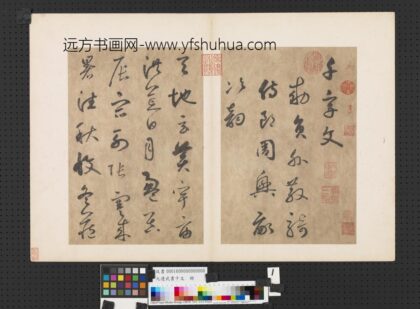 远方书画网-www.yfshuhua.com
千字文
勅員外散騎
侍郎周興嗣
次韻
天地玄黃宇宙
洪荒日月盈昃
辰宿列張寒來
暑往秋收冬藏